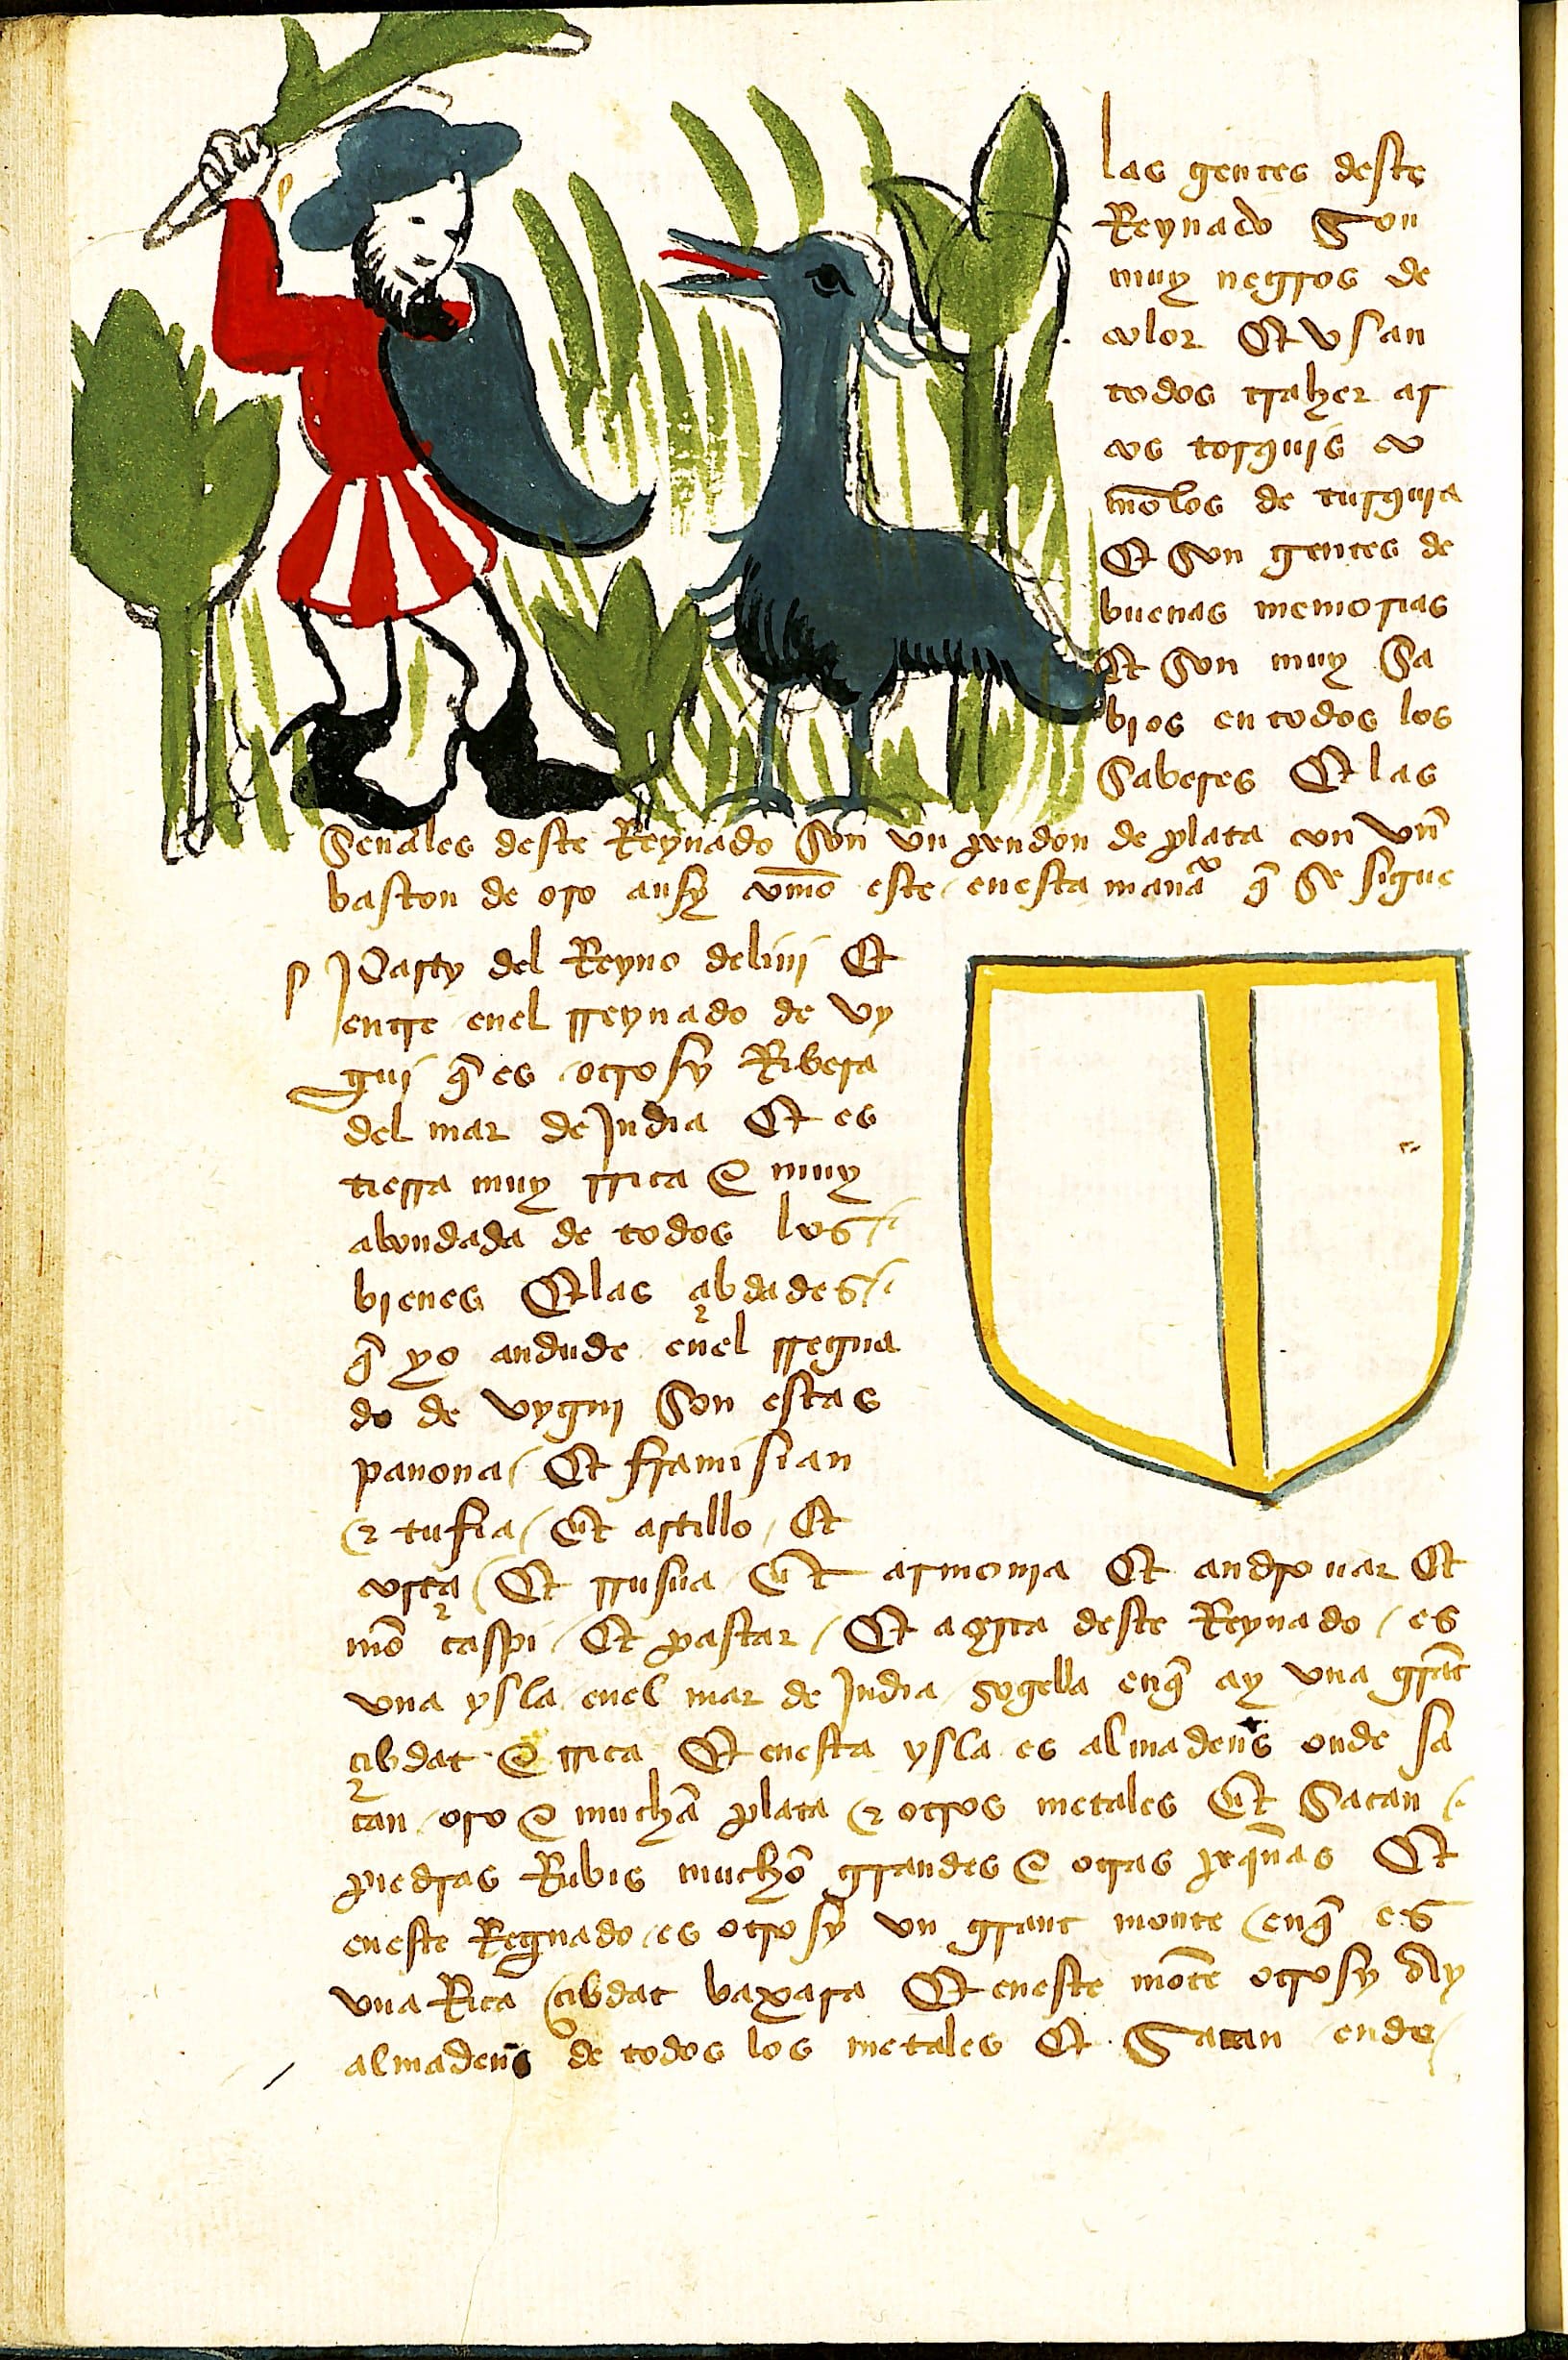 las gentes deste
Reynado Son
muy negros de
color Et vsan
todos traher ar
cos torquis co
mo los de turquia
Et Son gentes de
buenas memorias
Et Son muy Sa
bios en todos los
Saberes Et las
Señales deste Reynado Son vn pendon de plata con vn
baston de oro ansy como este enesta manera q̃ Se sigue
Party del Reyno delini Et
entre enel rreynado de vy
gui q̃ es otrosy Ribera
del mar de India Et es
tierra muy rrica e muy
abondada de todos los
bienes Et las çibdades
q̃ yo andude enel rregna
do de vygui Son estas
panona Et framisian
e tusia Et artillo Et
corça Et rrusua Et armonia Et andronar Et
mõ caspi Et pastar Et açerca deste Reynado es
vna ysla enel mar de India gogella enq̃ ay vna grãt
çibdat e rrica Et enesta ysla es almadenes onde sa
can oro e mucha plata e otros metales Et Sacan
piedras Rubis mucho grandes e otras peq̃nas Et
eneste Regnado es otrosy vn grant monte enq̃ es
vna Rica çibdat baxara Et eneste mõte otrosy ay
almadenes de todos los metales Et Sacan ende